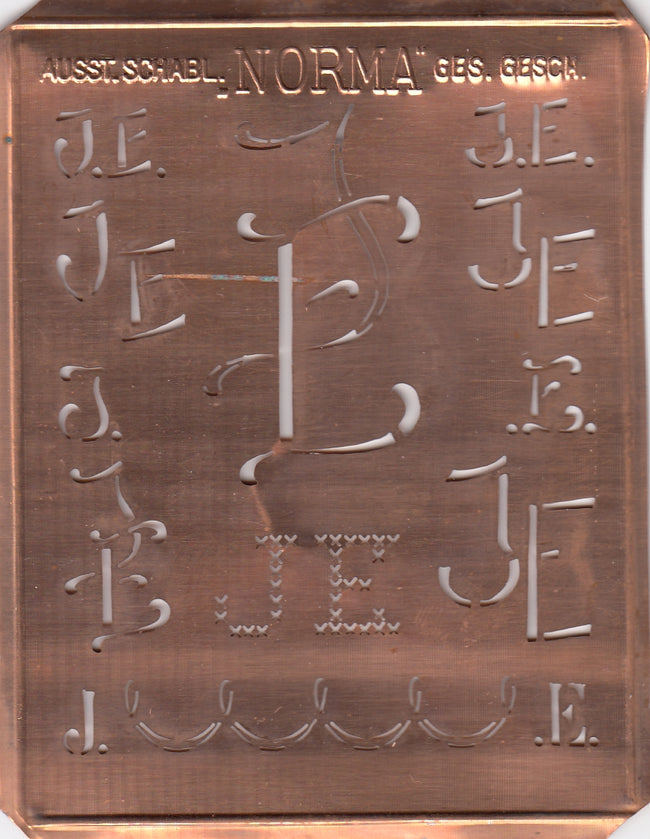 AUSST. SCHABL. „NORMA“ GES. GESCH.
J.E. J.E.
JE JE
JE
J. E.
JE JE
JE
J. E.